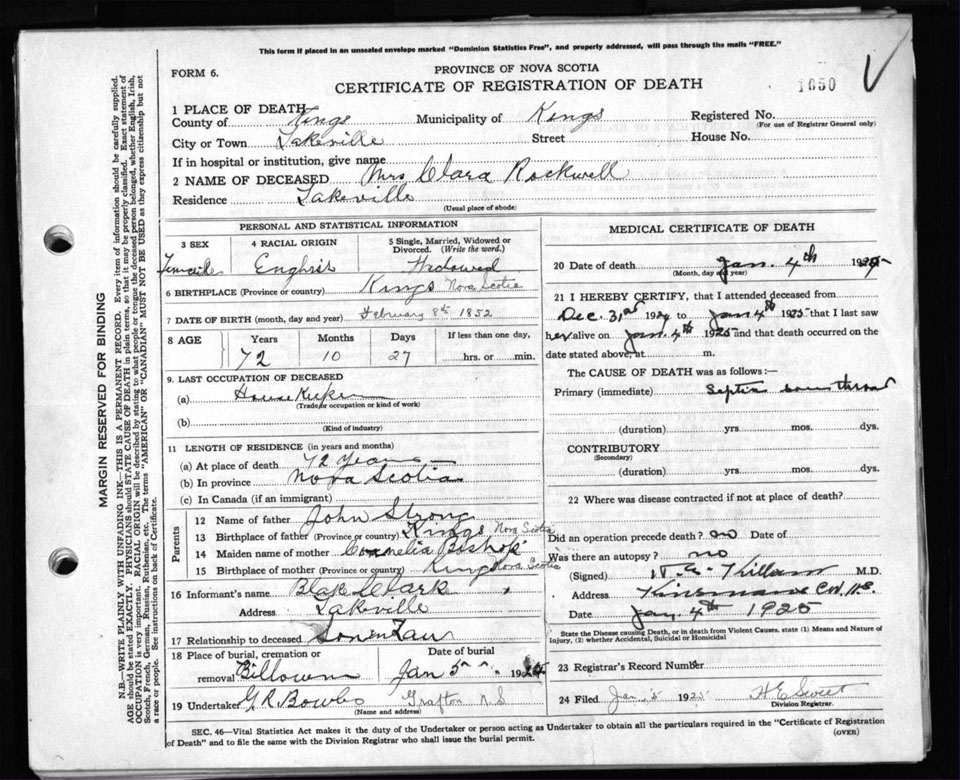 This form if placed in an unsealed envelope marked "Dominion Statistics Free", and properly addressed, will pass through the mails "FREE."
FORM 6.
PROVINCE OF NOVA SCOTIA
CERTIFICATE OF REGISTRATION OF DEATH
1050
1 PLACE OF DEATH
County of Kings Municipality of Kings Registered No.
(For use of Registrar General only)
City or Town Lakeville Street House No.
If in hospital or institution, give name
2 NAME OF DECEASED Mrs Clara Rockwell
Residence Lakeville
(Usual place of abode)
PERSONAL AND STATISTICAL INFORMATION
3 SEX 4 RACIAL ORIGIN 5 Single, Married, Widowed or Divorced. (Write the word.)
English Widowed
6 BIRTHPLACE (Province or country) Kings Nova Scotia
7 DATE OF BIRTH (month, day and year) February 8th 1852
8 AGE Years Months Days If less than one day,
72 10 27 hrs. or min.
9. LAST OCCUPATION OF DECEASED
(a) House Keeker
(Trade or occupation or kind of work)
(b)
(Kind of industry)
11 LENGTH OF RESIDENCE (in years and months)
(a) At place of death 72 Years
(b) In province Nova Scotia
(c) In Canada (if an immigrant)
Parents
12 Name of father John Strong
13 Birthplace of father (Province or country) Kings Nova Scotia
14 Maiden name of mother Cornelia Bishop
15 Birthplace of mother (Province or country) Kings Nova Scotia
16 Informant's name Blak Clark
Address Lakeville
17 Relationship to deceased Son in Law
18 Place of burial, cremation or removal Billown Date of burial Jan 5 192
19 Undertaker G.R. Bowls Grafton N S
(Name and address)
MEDICAL CERTIFICATE OF DEATH
20 Date of death Jan. 4th 1925
(Month, day and year)
21 I HEREBY CERTIFY, that I attended deceased from
Dec. 31st 1924 to Jan 4th 1925 that I last saw
her alive on Jan. 4th 1925 and that death occurred on
date stated above, at m.
The CAUSE OF DEATH was as follows:—
Primary (immediate) Septic sour throat
(duration) yrs. mos. dys.
CONTRIBUTORY
(Secondary)
(duration) yrs. mos. dys.
22 Where was disease contracted if not at place of death?
Did an operation precede death? no Date of
Was there an autopsy? no
(Signed) Killam M.D.
Address Kinsmans Cor. N.S.
Date Jan, 4th 1925
State the Disease causing Death, or in death from Violent Causes, state (1) Means and Nature of
Injury, (2) whether Accidental, Suicidal or Homicidal
23 Registrar's Record Number
24 Filed Jan. 5 1925 H E Sweet
Division Registrar.
SEC. 46—Vital Statistics Act makes it the duty of the Undertaker or person acting as Undertaker to obtain all the particulars required in the "Certificate of Registration
of Death" and to file the same with the Division Registrar who shall issue the burial permit.
(OVER)
MARGIN RESERVED FOR BINDING
N.B.—WRITE PLAINLY WITH UNFADING INK—THIS IS A PERMANENT RECORD. Every item of information should be carefully supplied.
AGE should be stated EXACTLY. PHYSICIANS should STATE CAUSE OF DEATH in plain terms, so that it may be properly classified. Exact statement of
OCCUPATION is very important. RACIAL ORIGIN will be described by stating to what people or tongue the deceased person belonged, whether English, Irish,
Scotch, French, German, Russian, Ruthenian, etc. The terms "AMERICAN" OR "CANADIAN" MUST NOT BE USED as they express citizenship but not
a race or people. See instructions on back of Certificate.